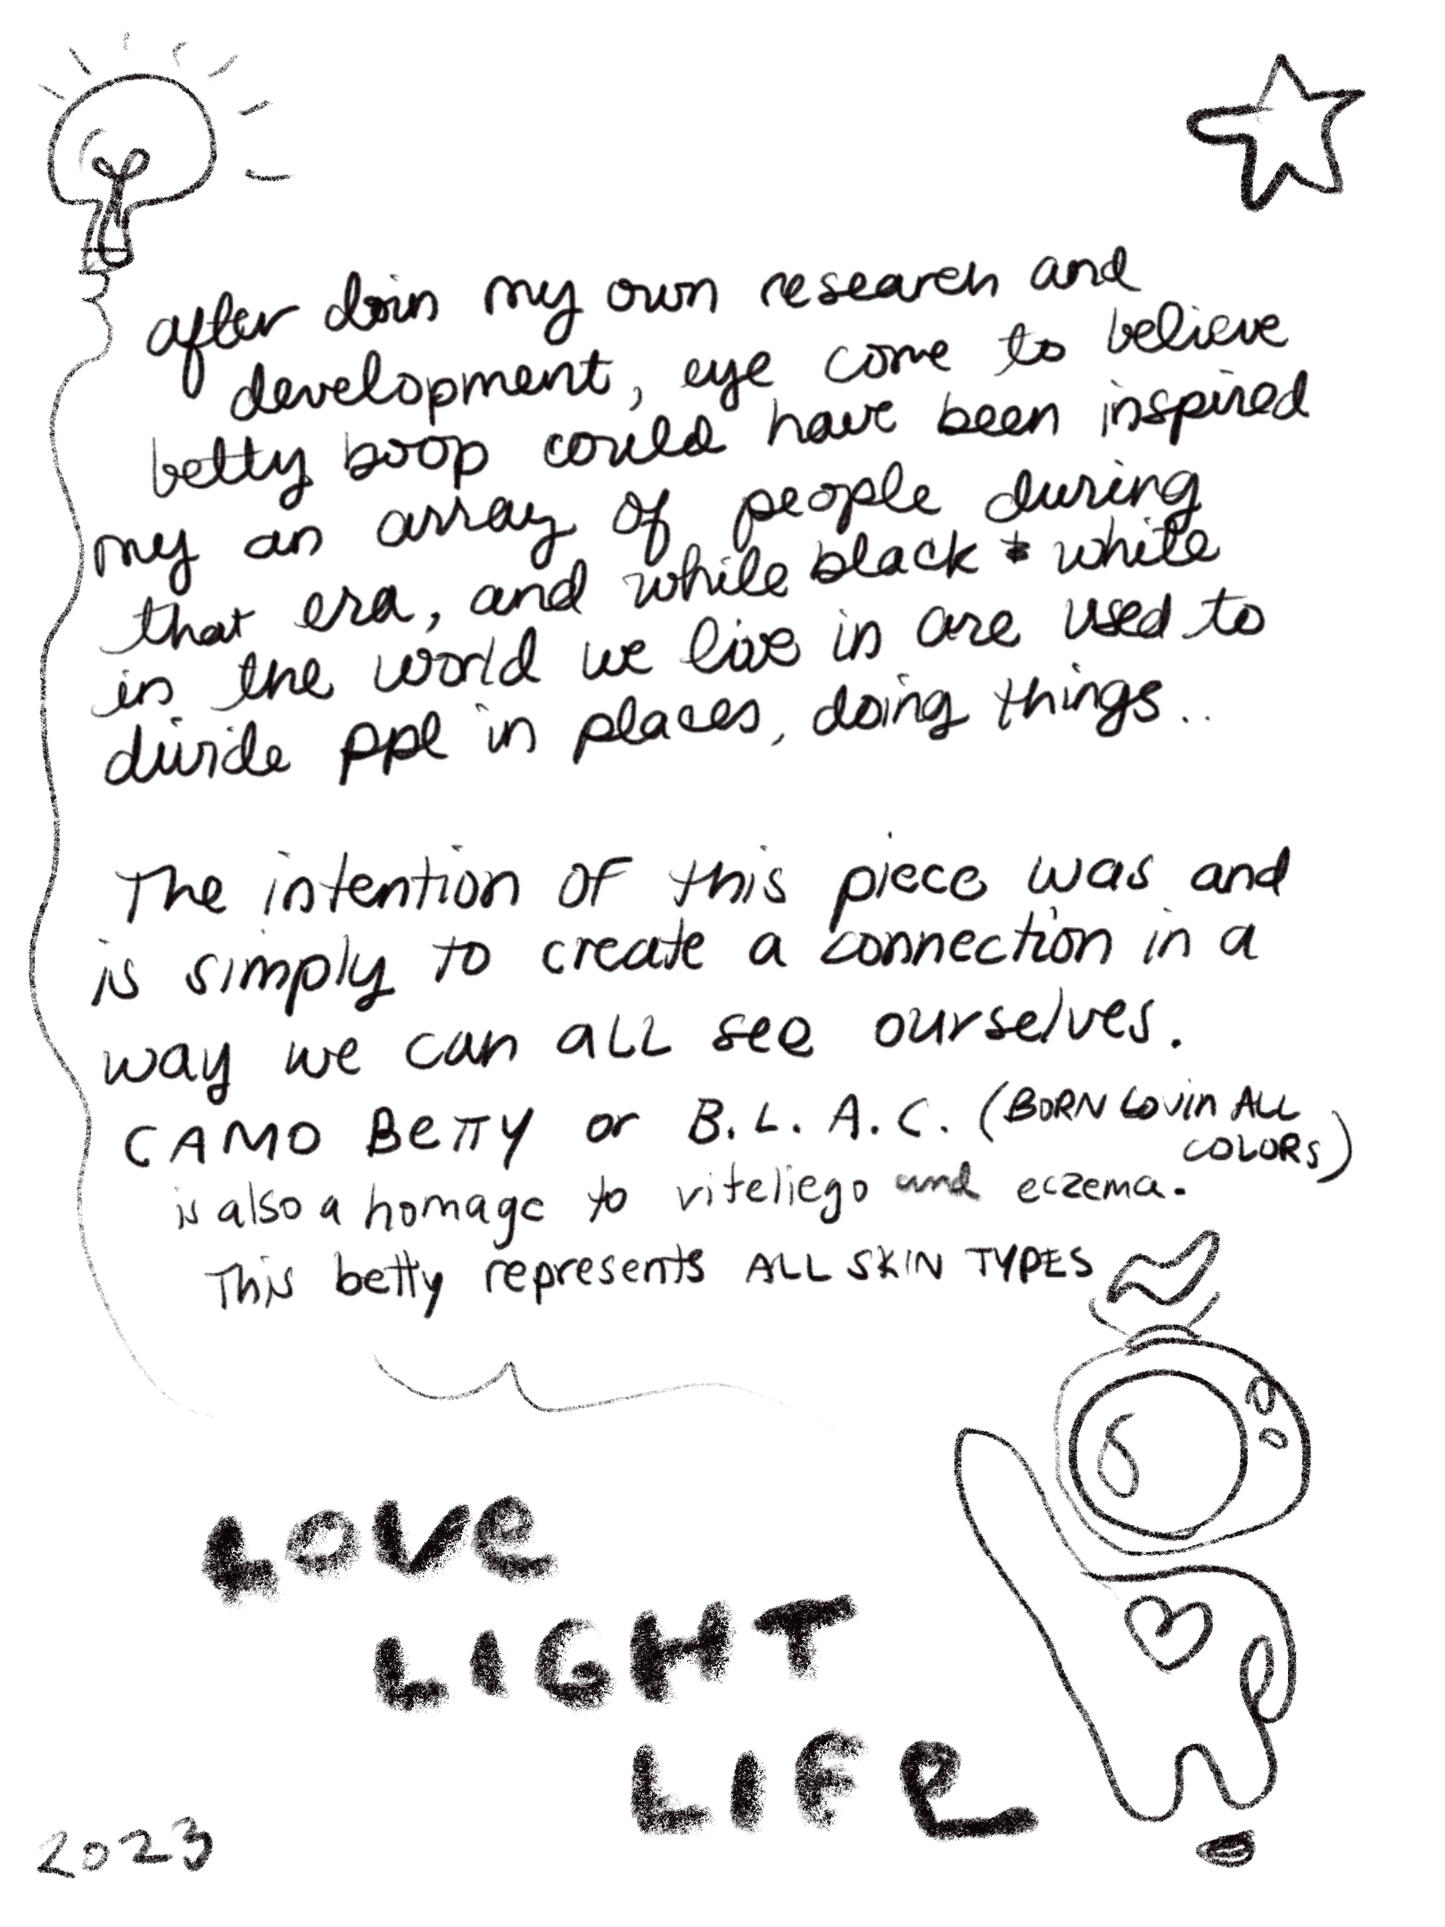 after doin my own research and
development, eye come to believe
betty boop could have been inspired
my an array of people during
that era, and while black & white
in the world we live in are used to
divide ppl in places, doing things..
The intention of this piece was and
is simply to create a connection in a
way we can all see ourselves.
CAMO BETTY or B.L.A.C. (BORN Lovin ALL
COLORS)
is also a homage to viteliego and eczema.
This betty represents ALL SKIN TYPES
LOVE
LIGHT
LIFE
2023